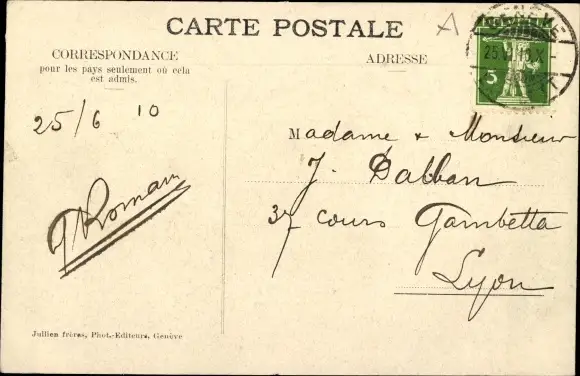 CARTE POSTALE
A
GENÈVE
25.VI.10.X-
5
CORRESPONDANCE
pour les pays seulement où cela
est admis.
ADRESSE
25/6 10
Madame & Monsieur
J. Dabban
37 cours Gambetta
Lyon
J Romain
Jullien frères, Phot.-Editeurs, Genève